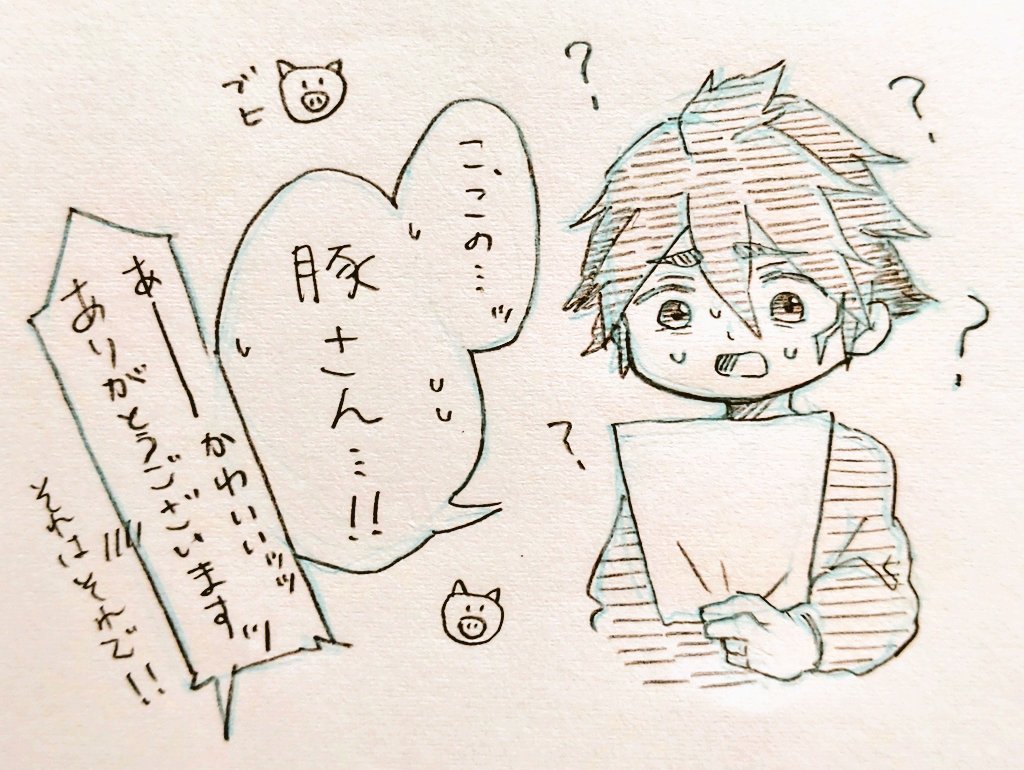 ブヒ
こ、この…ッ
豚さん…!!
あーーかわいいッッ
ありがとうございますッ
それはそれで!!
?
?
?
?